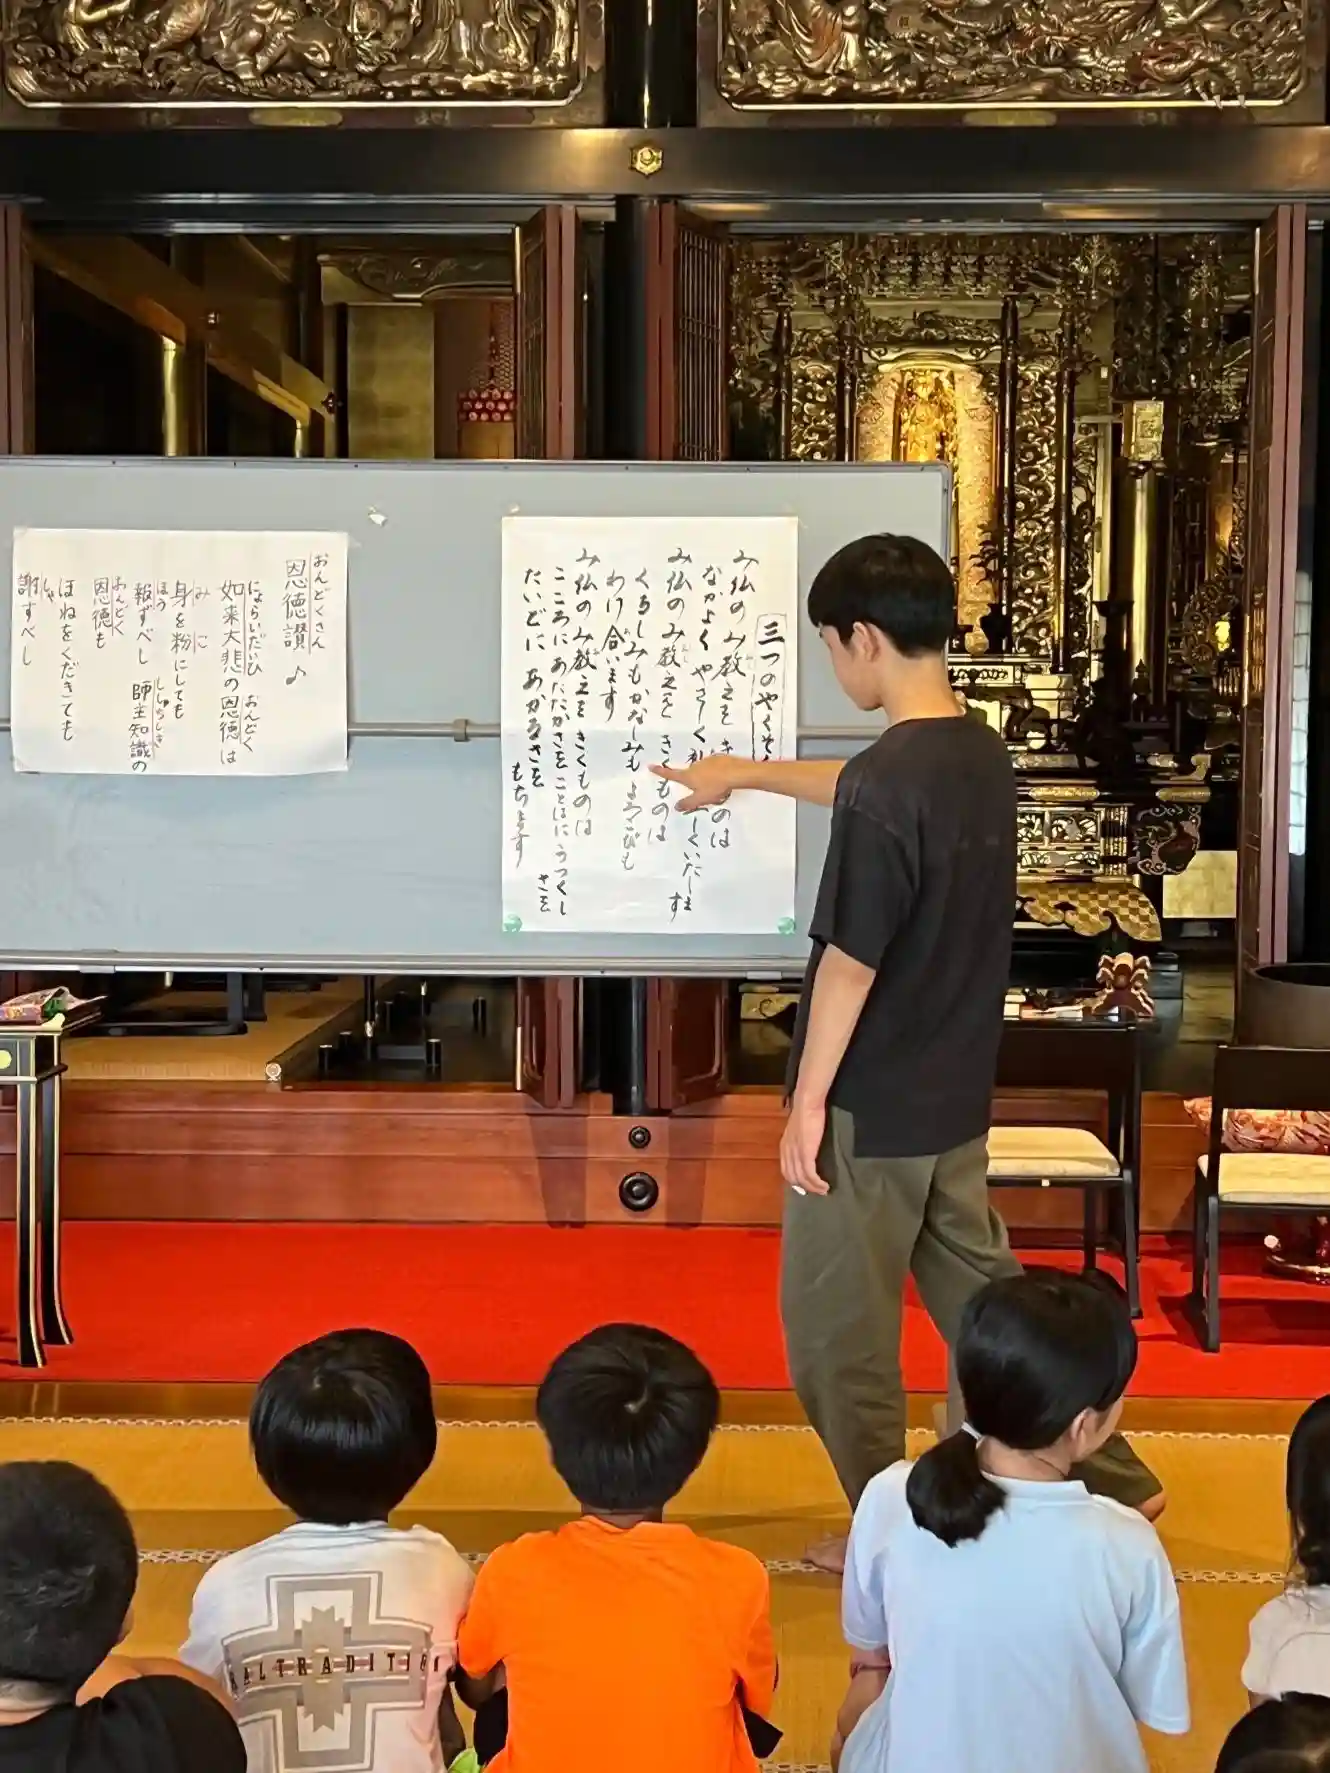 三つのやくそく
み仏のみ教えを きくものは
なかよく やさしく 礼 しくいたします
み仏のみ教えを きくものは
くるしみもかなしみも よろこびも
わけ合います
み仏のみ教えを きくものは
こころにあたたかさを ことばにうつくしさを
たいどに あかるさを
もちます
おんどくさん
恩徳讃♪
にょらいだいひ おんどく
如来大悲の恩徳は
み に
身を粉にしても
ほう ししゅちしき
報ずべし 師主知識の
おんどく
恩徳も
ほねをくだきても
しゃ
謝すべし
RALTRADITI